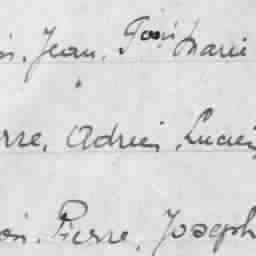 is. Jean. Marie
rre, Adrien, Lucien
ois. Pierre, Joseph